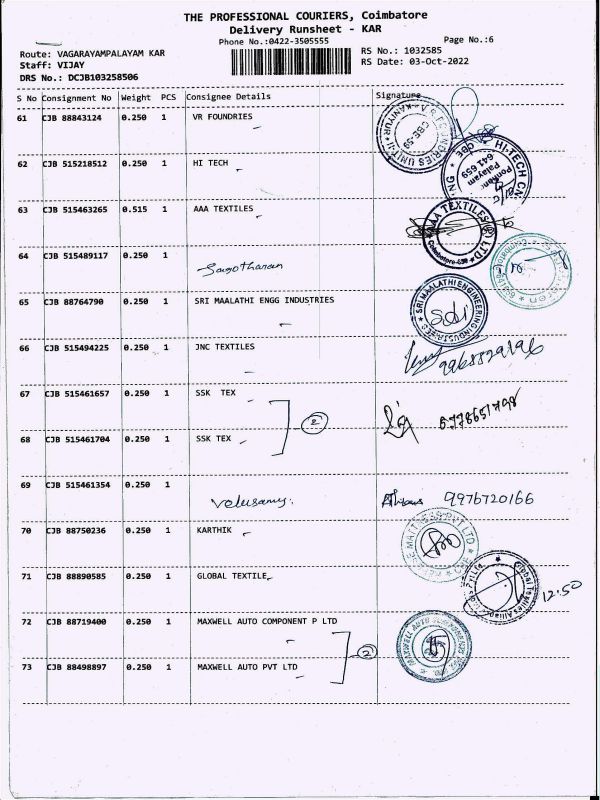 THE PROFESSIONAL COURIERS, Coimbatore
Delivery Runsheet - KAR
Phone No.:0422-3505555
Page No.:6
Route: VAGARAYAMPALAYAM KAR
RS No.: 1032585
Staff: VIJAY
RS Date: 03-Oct-2022
DRS No.: DCJB103258506
S No Consignment No Weight PCS Consignee Details Signature
61 CJB 88843124 0.250 1 VR FOUNDRIES
62 CJB 515218512 0.250 1 HI TECH
HI-TECH CNC
641 659
63 CJB 515463265 0.515 1 AAA TEXTILES
AAA TEXTILES (P) LTD
Coimbatore-659
64 CJB 515489117 0.250 1
65 CJB 88764790 0.250 1 SRI MAALATHI ENGG INDUSTRIES
SRI MAALATHI ENGINEERING INDUSTRIES
66 CJB 515494225 0.250 1 JNC TEXTILES
67 CJB 515461657 0.250 1 SSK TEX
2
68 CJB 515461704 0.250 1 SSK TEX
69 CJB 515461354 0.250 1
Velusamy.
9976720166
70 CJB 88750236 0.250 1 KARTHIK
71 CJB 88890585 0.250 1 GLOBAL TEXTILE
12.50
72 CJB 88719400 0.250 1 MAXWELL AUTO COMPONENT P LTD
2
73 CJB 88498897 0.250 1 MAXWELL AUTO PVT LTD